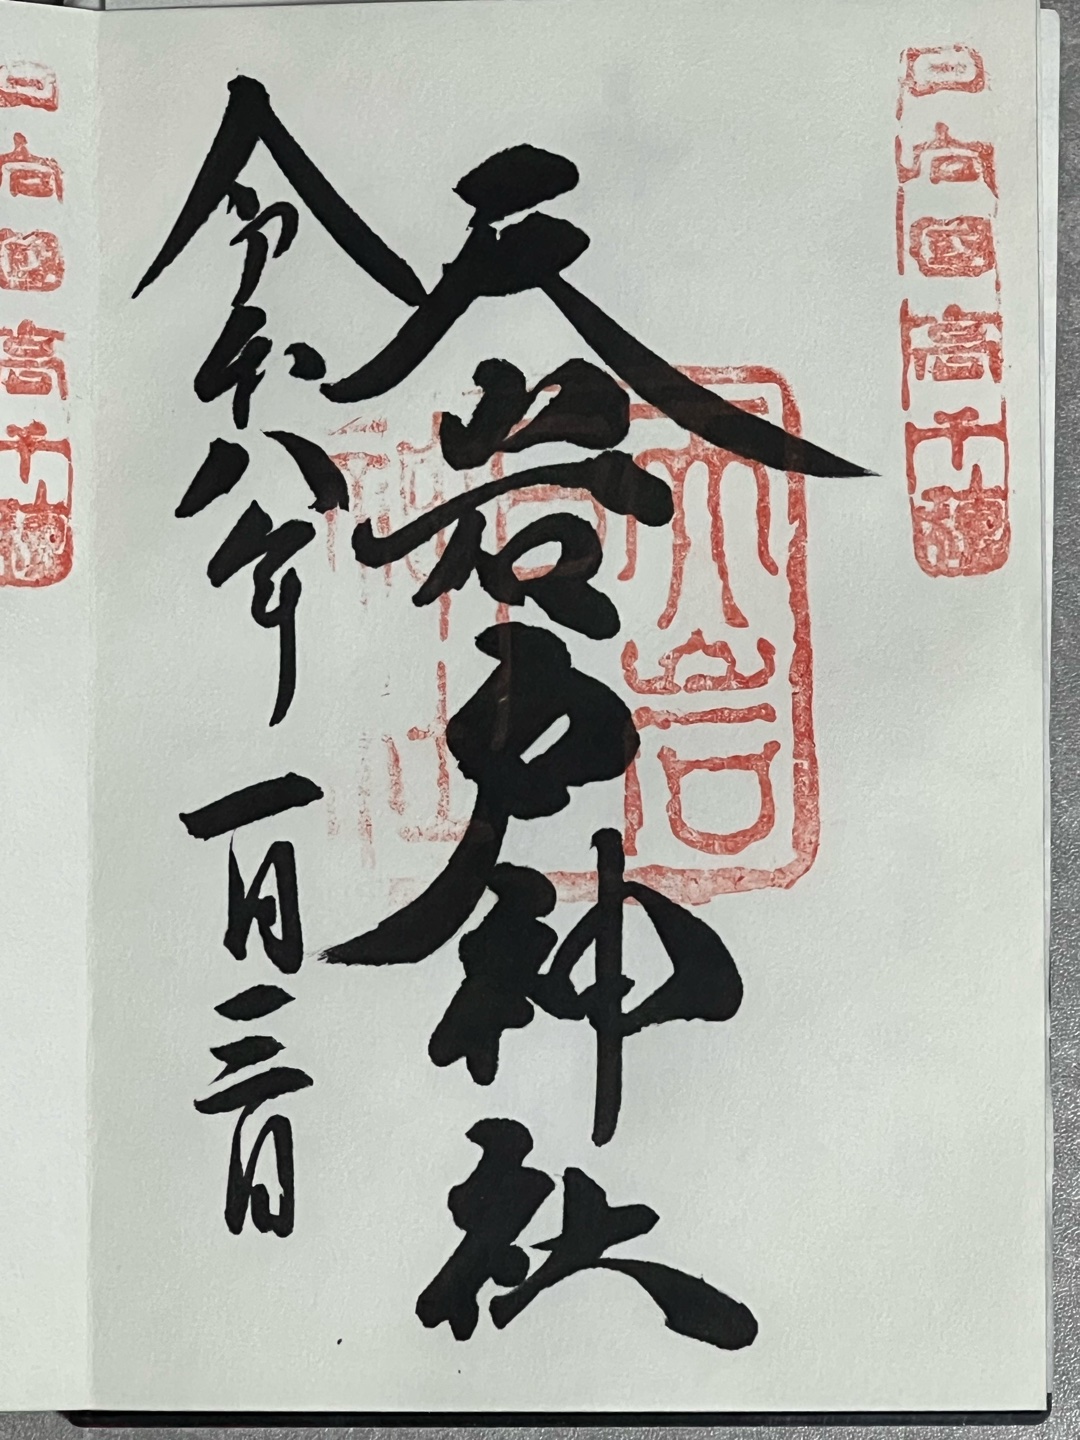 日向國高千穂
天岩戸神社
天岩戸神社
令和八年一月三日
日向國高千穂